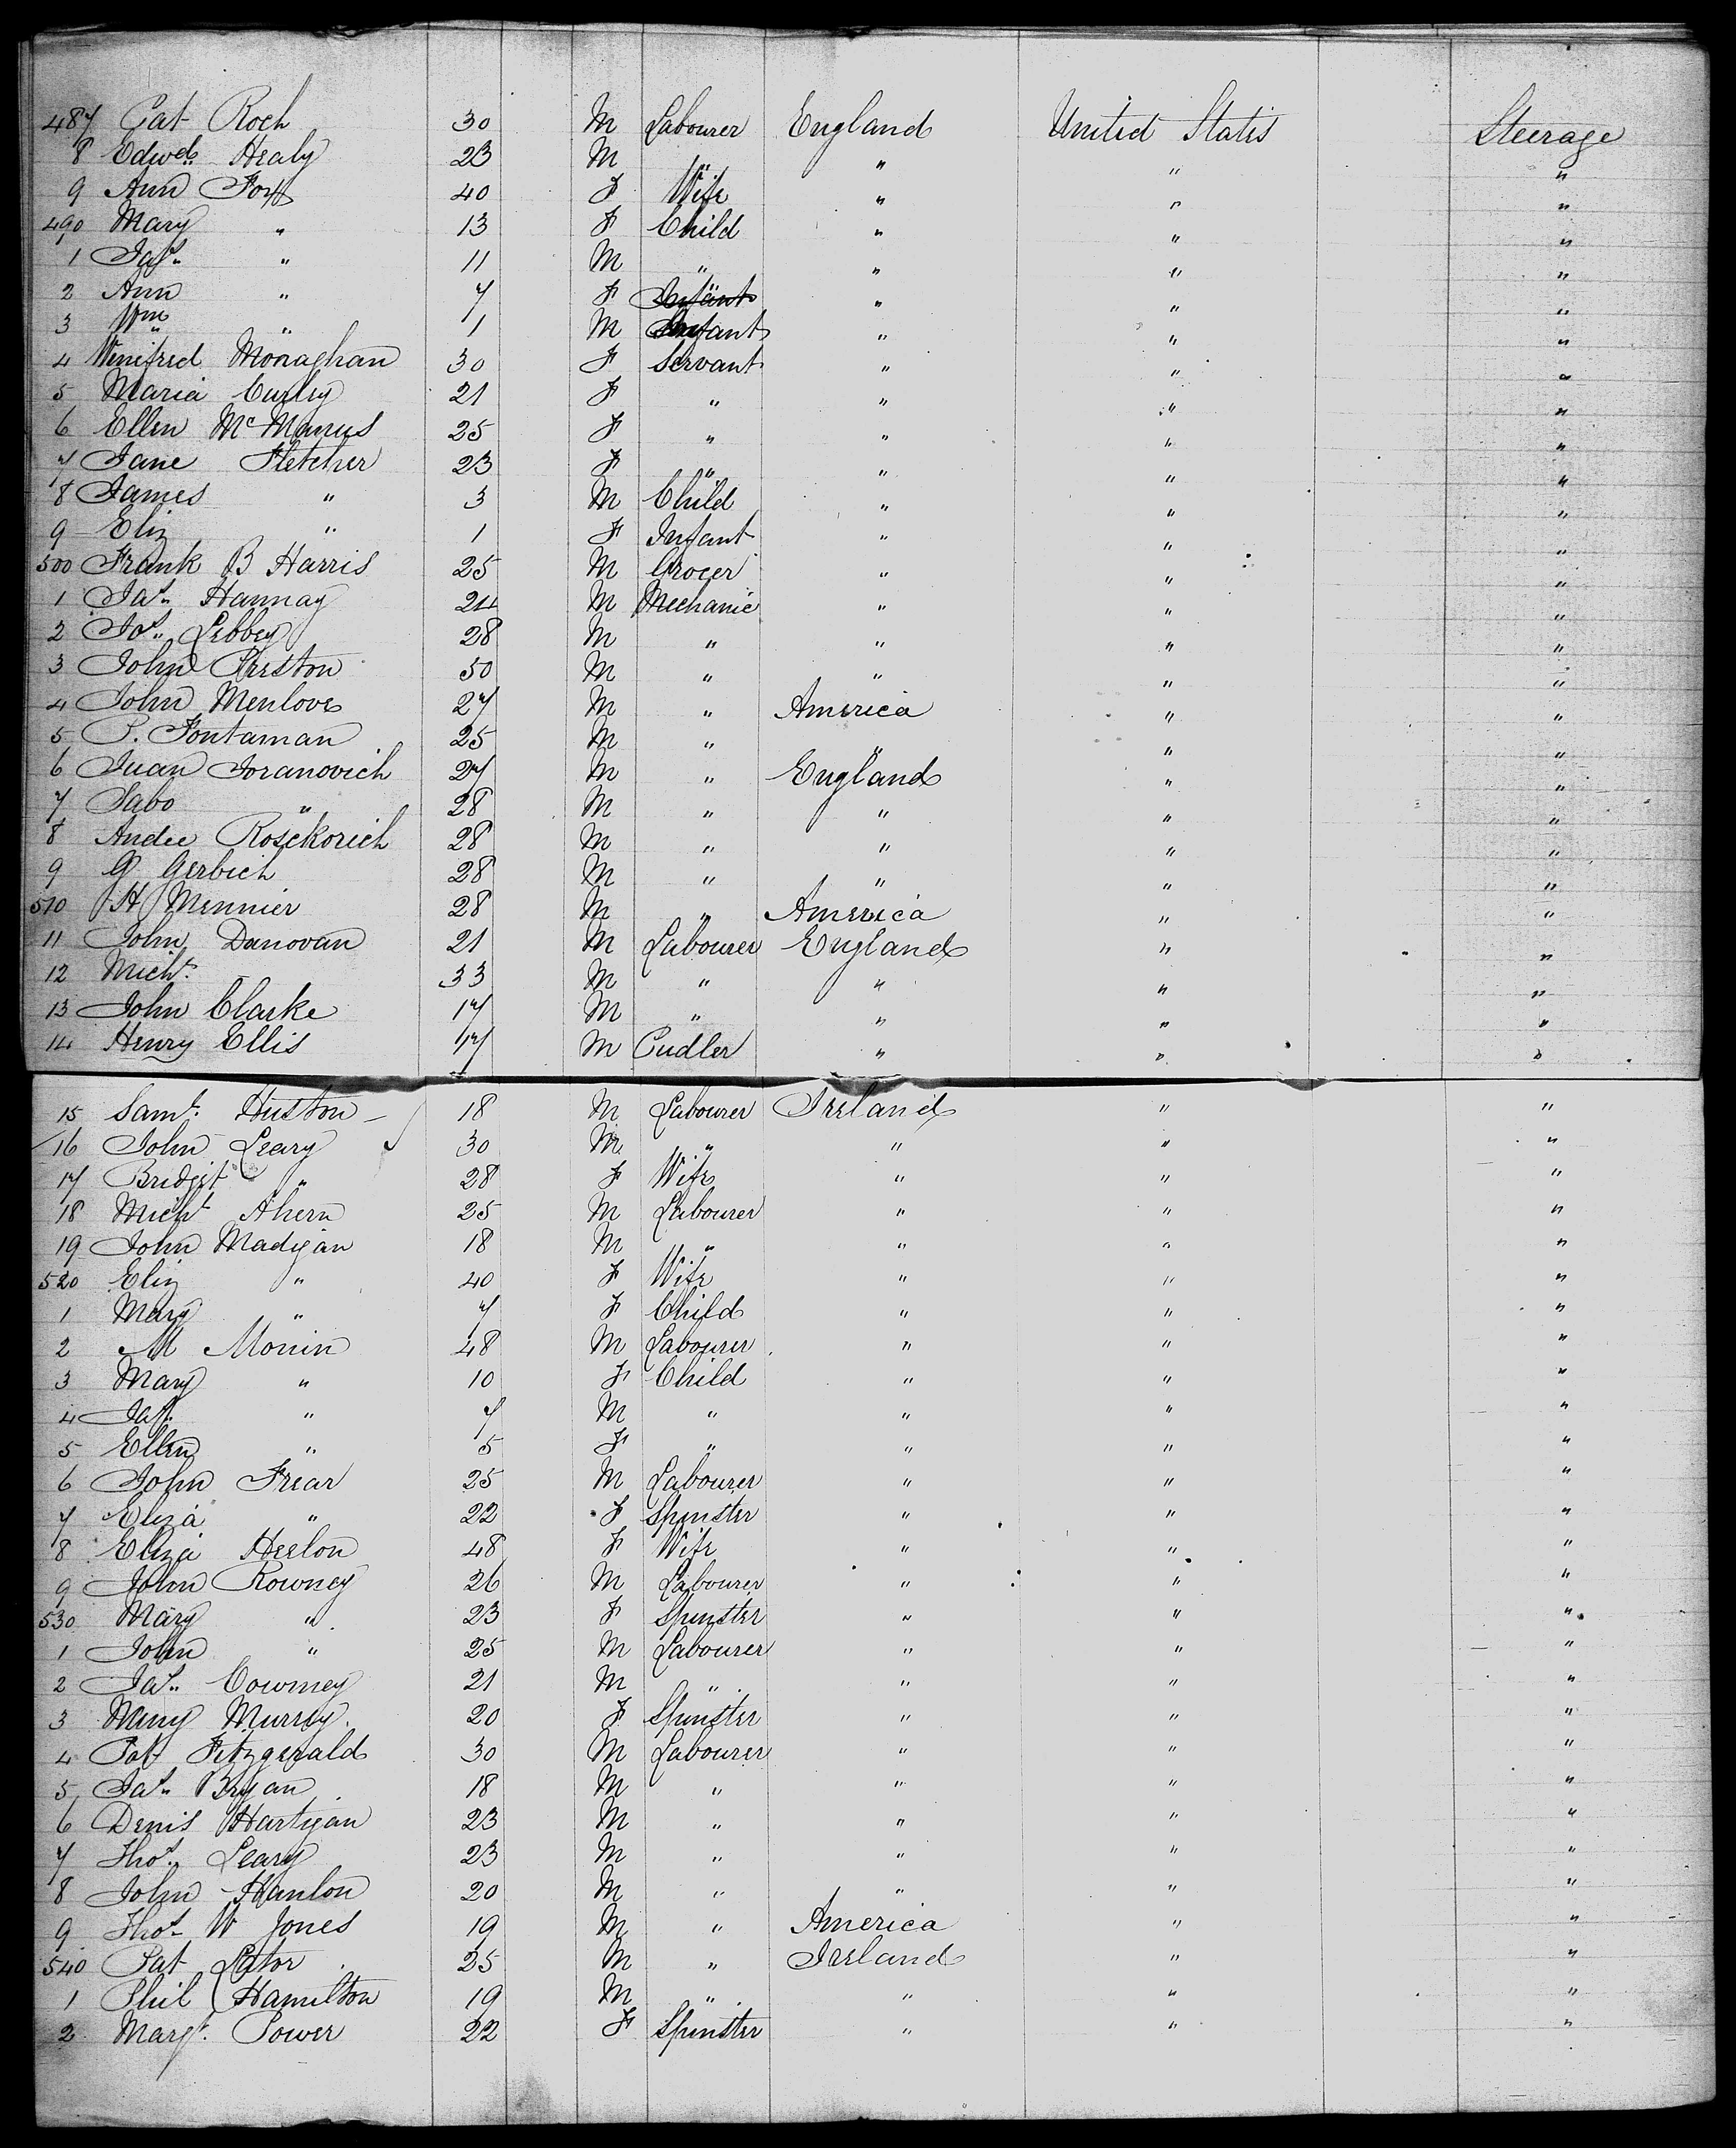 487 Cat Roch 30 M Labourer England United States Steerage
8 Edwd Healy 23 M " " " "
9 Ann Foy 40 F Wife " " "
490 Mary " 13 F Child " " "
1 Jas " 11 M " " " "
2 Ann " 7 F Infant " " "
3 Wm " 1 M Infant " " "
4 Winifred Monaghan 30 F Servant " " "
5 Maria Curley 21 F " " " "
6 Ellen McManus 25 F " " " "
7 Jane Fletcher 23 F " " " "
8 James " 3 M Child " " "
9 Eliz " 1 F Infant " " "
500 Frank B Harris 25 M Grocer " " "
1 Jas Hannay 24 M Mechanic " " "
2 Jos Lebbey 28 M " " " "
3 John Preston 50 M " " " "
4 John Menlove 27 M " America " "
5 P. Fontaman 25 M " " " "
6 Juan Joranovich 27 M " England " "
7 Sabo " 28 M " " " "
8 Andee Rosekovich 28 M " " " "
9 G Gerbich 28 M " " " "
510 H Mennier 28 M " America " "
11 John Danovan 21 M Labourer England " "
12 Michl 33 M " " " "
13 John Clarke 17 M " " " "
14 Henry Ellis 17 M Cudler " " "
15 Saml Huston 18 M Labourer Ireland " "
16 John Leary 30 M " " " "
17 Bridget " 28 F Wife " " "
18 Michl Ahern 25 M Labourer " " "
19 John Madigan 18 M " " " "
520 Eliz " 40 F Wife " " "
1 Mary " 7 F Child " " "
2 M Monin 48 M Labourer " " "
3 Mary " 10 F Child " " "
4 Jas " 7 M " " " "
5 Ellen " 5 F " " " "
6 John Frear 25 M Labourer " " "
7 Eliza " 22 F Spinster " " "
8 Eliza Heelon 48 F Wife " " "
9 John Rowney 26 M Labourer " " "
530 Mary " 23 F Spinster " " "
1 John " 25 M Labourer " " "
2 Jas Cowney 21 M " " " "
3 Mary Murray 20 F Spinster " " "
4 Pat Fitzgerald 30 M Labourer " " "
5 Jas Bryan 18 M " " " "
6 Denis Hartigan 23 M " " " "
7 Thos Leary 23 M " " " "
8 John Hanlon 20 M " " " "
9 Thos W Jones 19 M " America " "
540 Pat Lator 25 M " Ireland " "
1 Phil Hamilton 19 M " " " "
2 Margt Power 22 F Spinster " " "